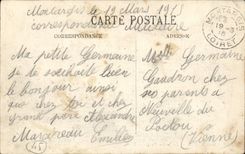 Montargis le 19 Mars 1915
correspondance Militaire
CARTE POSTALE
CORRESPONDANCE
ADRESSE
MONTARGIS
LOIRET
Ma petite Germaine
je te souhaite bien
le bonjour ainsi
que chez toi et chez
grand père Alexandre
Emilien
Melle Germaine
chez
ses parents à
Neuville du
Poitou
(Vienne)
(45)